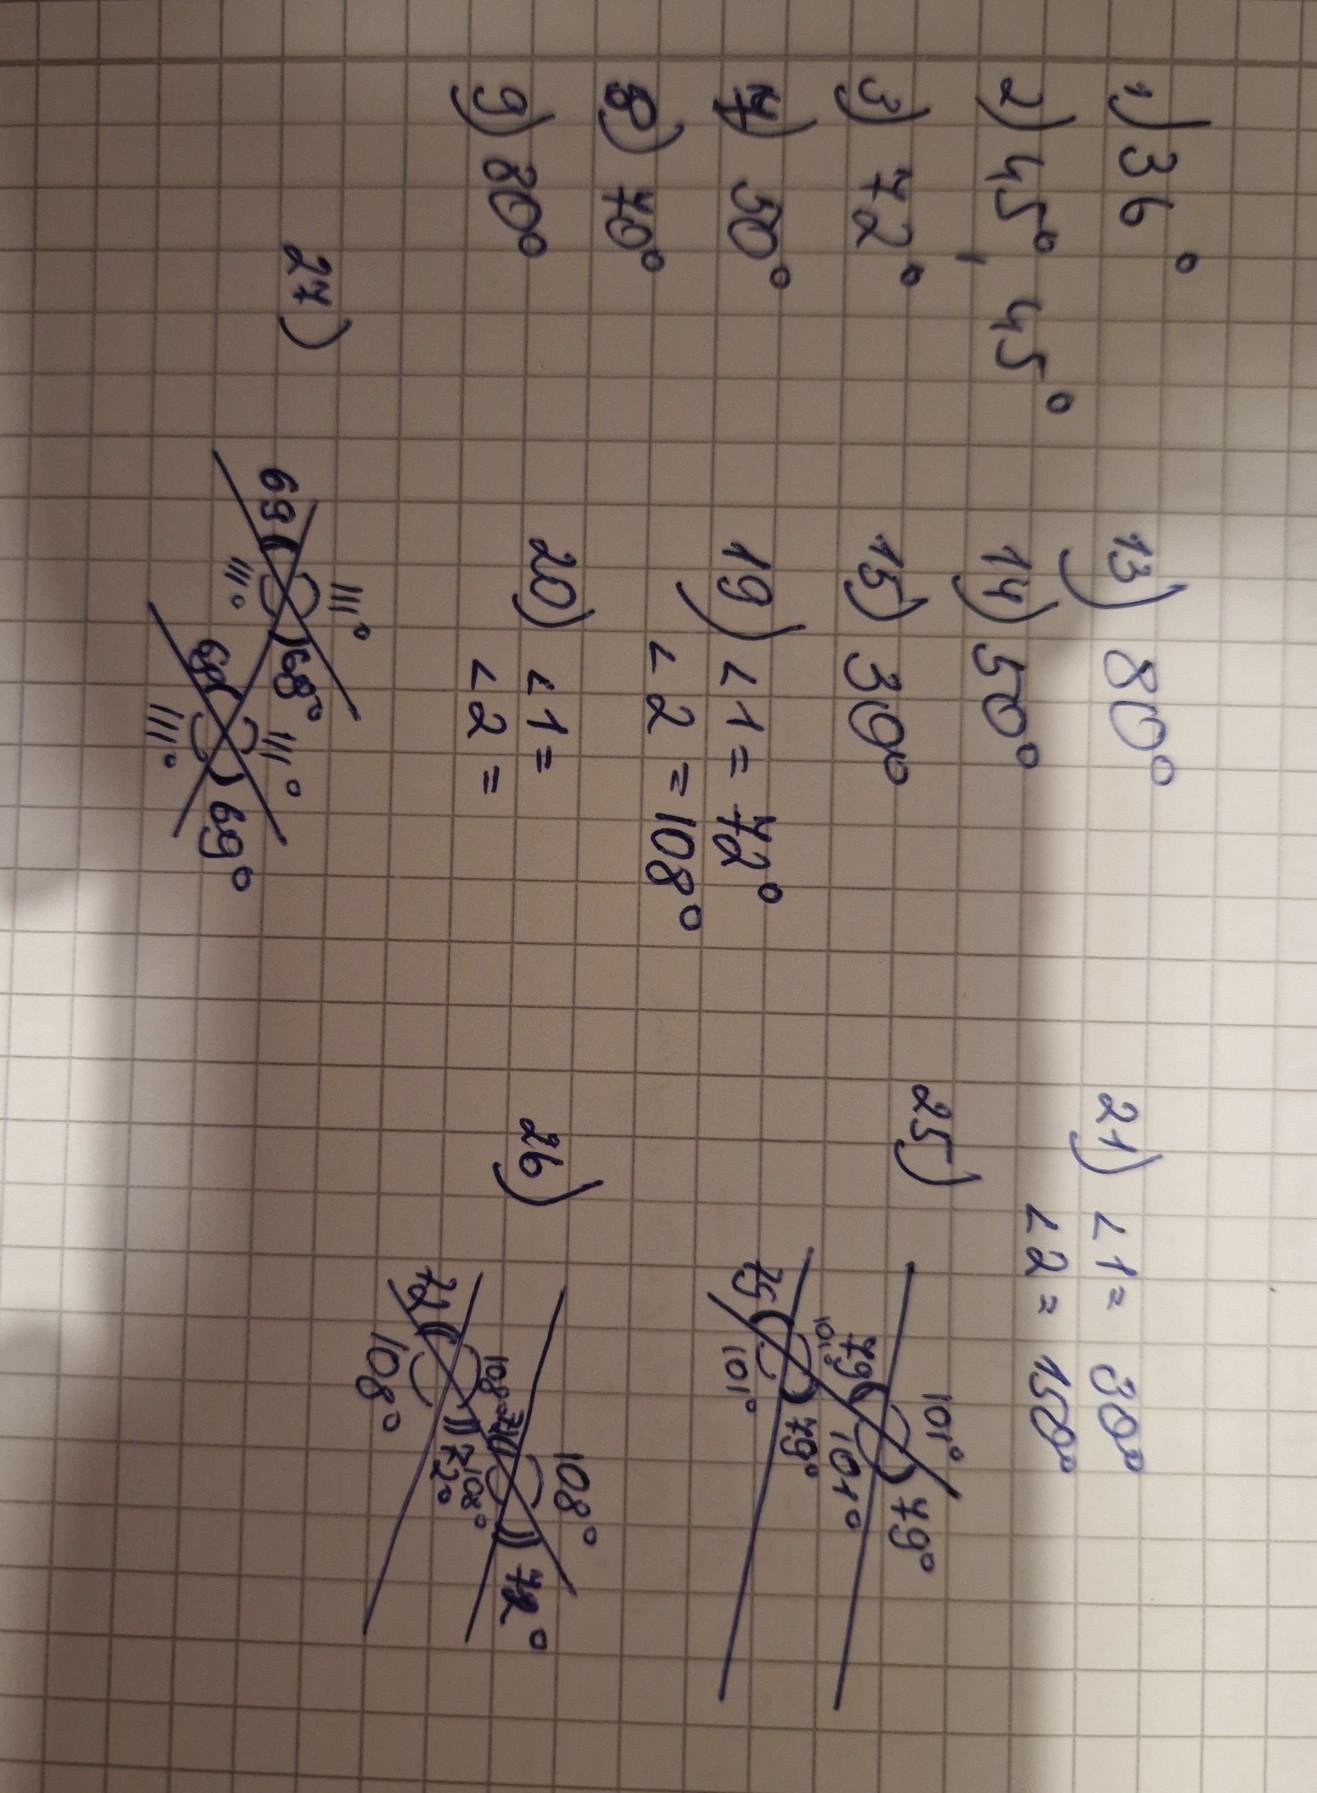 1) 36°
2) 45°, 45°
3) 72°
7) 50°
8) 70°
9) 80°
13) 80°
14) 50°
15) 30°
19) ∠1 = 72°
∠2 = 108°
20) ∠1 =
∠2 =
21) ∠1 = 30°
∠2 = 150°
25)
101°
79°
79
101°
101°
75
79°
101°
26)
108°
72°
108°
108°
72°
72
108°
27)
111°
69
68°
111°
111°
69°
111°